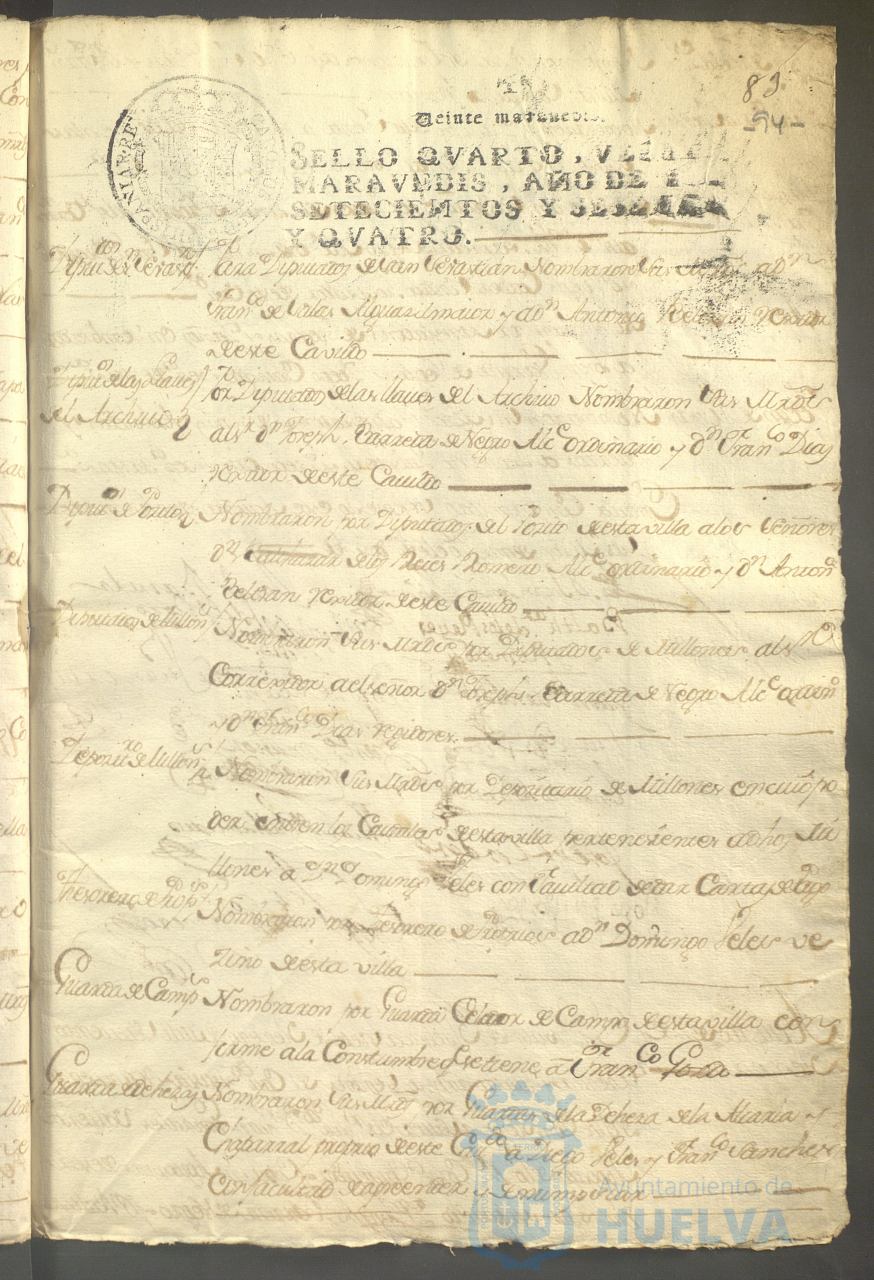 83
-94-
Veinte maravedis.
SELLO QVARTO, VEINTE
MARAVEDIS, AÑO DE
SETECIENTOS Y SESENTA
Y QVATRO.
Para Diputados de San Sevastian Nombraron Sus Mrds a Dn
Franco de Alguacil maior y a Dn Antonio Beltran
deste Cavildo
Diputs de las llaves
del Archivo
Por Diputados de las llaves del Archivo Nombraron Sus Mrds
al Sr Dn Joseph Barreda de Negro Alce ordinario y Dn Franco Diaz
rexidor deste Cavildo
Diputs de Posito
Nombraron por Diputados del Posito desta villa a los Señores
Dn Balthazar de los Reies Romero Alce ordinario y Dn Anton
Beltran rexidor deste Cavildo
Diputados de Millons
Nombraron Sus Mrds por Diputados de Millones al Sr
Correxidor al señor Dn Joseph Barreda de Negro Alce ordin
y Dn Franco Diaz rexidores.
Depositro de Millons
Nombraron Sus Mrds por Depositario de Millones en cuio po
der entren los Caudales desta villa pertenesientes a dhos Mi
llones a Dn Domingo Feles con facultad de dar Cartas de pago
Thesorero de Props
Nombraron por Tesorero de Propios a Dn Domingo Feles ve
zino desta villa
Guarda de Campo
Nombraron por Guarda Celador de Campo desta villa con
forme a la Constumbre qe se tiene a Franco
Guardas de hesas
Nombraron Sus Mrds por Guardas de la Dehesa de la Alcaria y
Chaparral propio deste Cavdo a Diego Feles y Franco Sanches
con facultad de aprender y denunciar
Ayuntamiento de
HUELVA